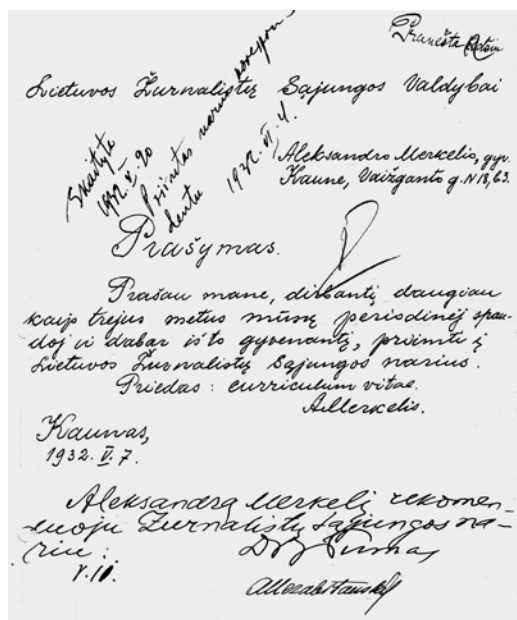 Pranešta
Lietuvos Žurnalistų Sąjungos Valdybai
Skaityta
1932. V. 20
Priimtas nariu korespon-
dentu 1932. VI. 4.
Aleksandro Merkelio, gyv.
Kaune, Vaižganto g. N 18, b3.
Prašymas.
Prašau mane, dirbantį daugiau
kaip trejus metus mūsų periodinėj spau-
doj ir dabar iš to gyvenantį, priimti į
Lietuvos Žurnalistų Sąjungos narius.
Priedas: curriculum vitae.
A.Merkelis.
Kaunas,
1932. V. 7.
Aleksandrą Merkelį rekomen-
duoju Žurnalistų Sąjungos na-
riu:
Tumas
V.10.